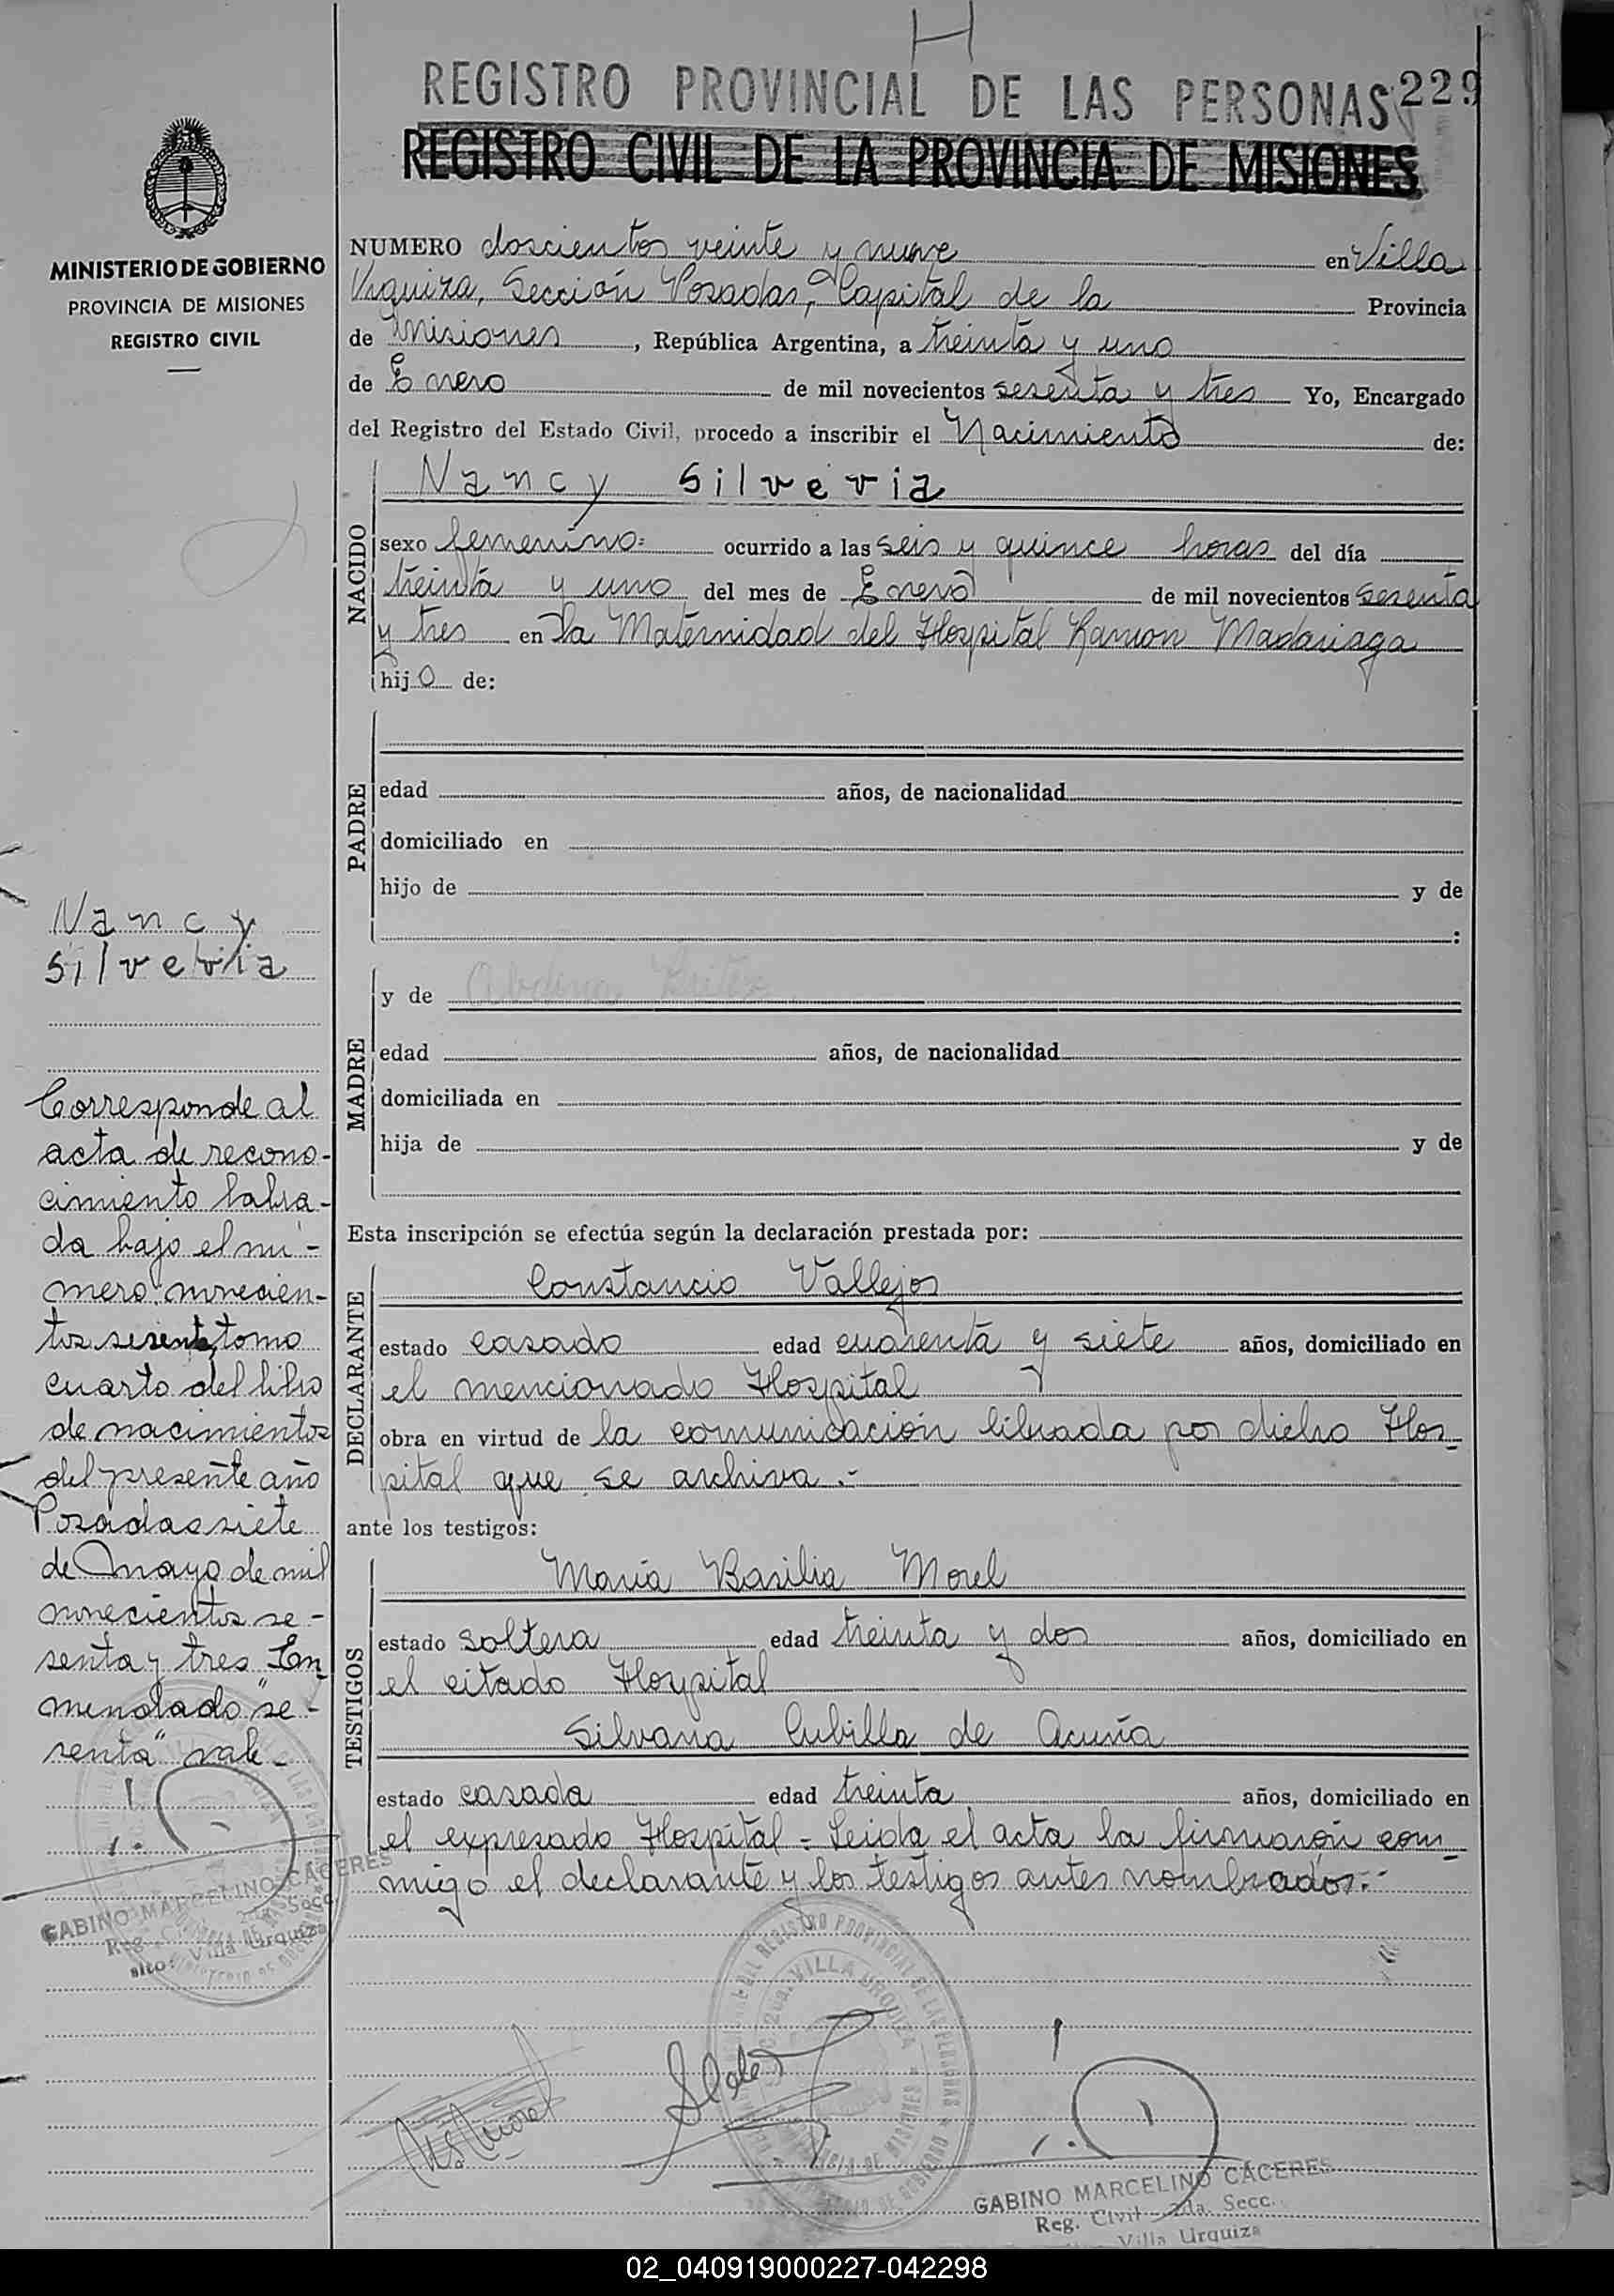 H
REGISTRO PROVINCIAL DE LAS PERSONAS 229
REGISTRO CIVIL DE LA PROVINCIA DE MISIONES
MINISTERIO DE GOBIERNO
PROVINCIA DE MISIONES
REGISTRO CIVIL
NUMERO doscientos veinte y nueve en Villa
Urquiza, Sección Posadas, Capital de la Provincia
de Misiones, República Argentina, a treinta y uno
de Enero de mil novecientos sesenta y tres Yo, Encargado
del Registro del Estado Civil, procedo a inscribir el Nacimiento de:
NACIDO
Nancy Silveria
sexo femenino= ocurrido a las seis y quince horas del día
treinta y uno del mes de Enero de mil novecientos sesenta
y tres en la Maternidad del Hospital Ramon Madariaga
hijo de:
PADRE
edad años, de nacionalidad
domiciliado en
hijo de y de
:
MADRE
y de
edad años, de nacionalidad
domiciliada en
hija de y de
Esta inscripción se efectúa según la declaración prestada por:
DECLARANTE
Constancio Vallejos
estado casado edad cuarenta y siete años, domiciliado en
el mencionado Hospital
obra en virtud de la comunicación librada por dicho Hos-
pital que se archiva.-
ante los testigos:
TESTIGOS
María Basilia Morel
estado soltera edad treinta y dos años, domiciliado en
el citado Hospital
Silvana Cubilla de Acuña
estado casada edad treinta años, domiciliado en
el expresado Hospital - Leida el acta la firmarón con
migo el declarante y los testigos antes nombrados.-
Nancy
Silveria
Corresponde al
acta de recono-
cimiento labra-
da bajo el nu-
mero: novecien-
tos sesenta tomo
cuarto del libro
de nacimientos
del presente año
Posadas siete
de Mayo de mil
novecientos se-
senta y tres "En
mendado "se-
senta" vale-
GABINO MARCELINO CACERES
Reg. Civil 2da. Secc.
Villa Urquiza
GABINO MARCELINO CACERES
Reg. Civil 2da. Secc.
Villa Urquiza
02_040919000227-042298